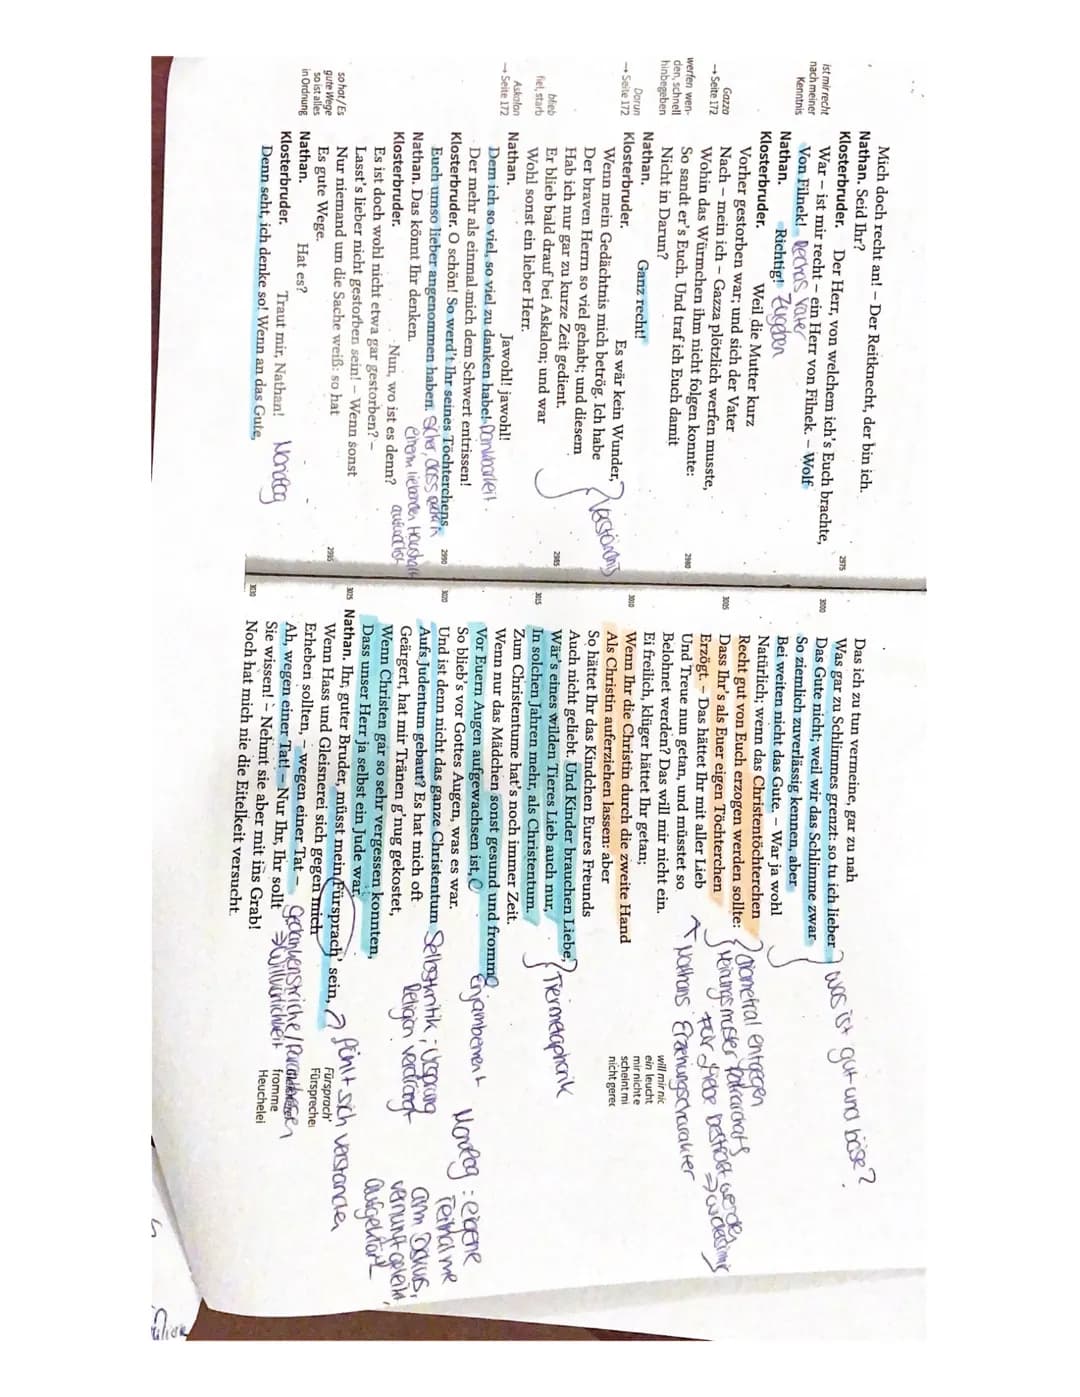 Mich doch recht an! – Der Reitknecht, der bin ich.
Nathan. Seid Ihr?
Klosterbruder. Der Herr, von welchem ich's Euch brachte,
ist mir recht
nach meiner
Kenntnis
War – ist mir recht – ein Herr von Filnek. – Wolf
2975
Von Filnek! Rechas Vater
Nathan. Richtig! zugeben
Klosterbruder. Weil die Mutter kurz
Vorher gestorben war; und sich der Vater
Gazza
→ Seite 172
Nach – mein ich – Gazza plötzlich werfen musste,
Wohin das Würmchen ihm nicht folgen konnte:
werfen wen-
den, schnell
hinbegeben
So sandt er's Euch. Und traf ich Euch damit
2980
Nicht in Darun?
Nathan. Ganz recht!
Darun
→ Seite 172
Klosterbruder. Es wär kein Wunder,
Wenn mein Gedächtnis mich betrög. Ich habe
Verständnis
Der braven Herrn so viel gehabt; und diesem
Hab ich nur gar zu kurze Zeit gedient.
blieb
fiel, starb
Er blieb bald drauf bei Askalon; und war
2985
Wohl sonst ein lieber Herr.
Askalon
→ Seite 172
Nathan. Jawohl! jawohl!
Dem ich so viel, so viel zu danken habe! Dankbarkeit
Der mehr als einmal mich dem Schwert entrissen!
Klosterbruder. O schön! So werd't Ihr seines Töchterchens
2990
Euch umso lieber angenommen haben.
Nathan. Das könnt Ihr denken.
einem liebenden Haushalt
Klosterbruder. Nun, wo ist es denn?
aufwächst
Es ist doch wohl nicht etwa gar gestorben? –
Lasst's lieber nicht gestorben sein! – Wenn sonst
so hat / Es
gute Wege
so ist alles
in Ordnung
Nur niemand um die Sache weiß: so hat
2995
Es gute Wege.
Nathan. Hat es?
Klosterbruder. Traut mir, Nathan!
Monolog
Denn seht, ich denke so! Wenn an das Gute,
Das ich zu tun vermeine, gar zu nah
Was gar zu Schlimmes grenzt: so tu ich lieber
3000
was ist gut und böse?
Das Gute nicht; weil wir das Schlimme zwar
So ziemlich zuverlässig kennen, aber
Bei weiten nicht das Gute. – War ja wohl
Natürlich; wenn das Christentöchterchen
Recht gut von Euch erzogen werden sollte:
diametral entgegen
Dass Ihr's als Euer eigen Töchterchen
3005
Erzögt. – Das hättet Ihr mit aller Lieb
für Liebe bestraft werden
Und Treue nun getan, und müsstet so
Nathans Erziehungscharakter
Belohnet werden? Das will mir nicht ein.
will mir nic
ein leucht
mir nicht e
scheint mi
nicht gerec
Ei freilich, klüger hättet Ihr getan;
Wenn Ihr die Christin durch die zweite Hand
3010
Als Christin auferziehen lassen: aber
So hättet Ihr das Kindchen Eures Freunds
Auch nicht geliebt. Und Kinder brauchen Liebe,
Wär's eines wilden Tieres Lieb auch nur,
Tiermetaphorik
In solchen Jahren mehr, als Christentum.
3015
Zum Christentume hat's noch immer Zeit.
Wenn nur das Mädchen sonst gesund und fromm
Vor Euern Augen aufgewachsen ist,
Enjambement
So blieb's vor Gottes Augen, was es war.
Monolog: eigene
Teilnahme
am Diskurs,
vernunftgeleitet,
aufgeklärt
Und ist denn nicht das ganze Christentum
3020
Selbstkritik; Ursprung
Aufs Judentum gebaut? Es hat mich oft
Religion verdrängt
Geärgert, hat mir Tränen g'nug gekostet,
Wenn Christen gar so sehr vergessen konnten,
Dass unser Herr ja selbst ein Jude war.
Nathan. Ihr, guter Bruder, müsst mein Fürsprach' sein,
3025
fühlt sich verstanden
Fürsprach'
Fürspreche
Wenn Hass und Gleisnerei sich gegen mich
Erheben sollten, – wegen einer Tat –
Gedankenstriche
Ah, wegen einer Tat! – Nur Ihr, Ihr sollt
fromme
Heuchelei
Sie wissen! – Nehmt sie aber mit ins Grab!
Noch hat mich nie die Eitelkeit versucht,
3030